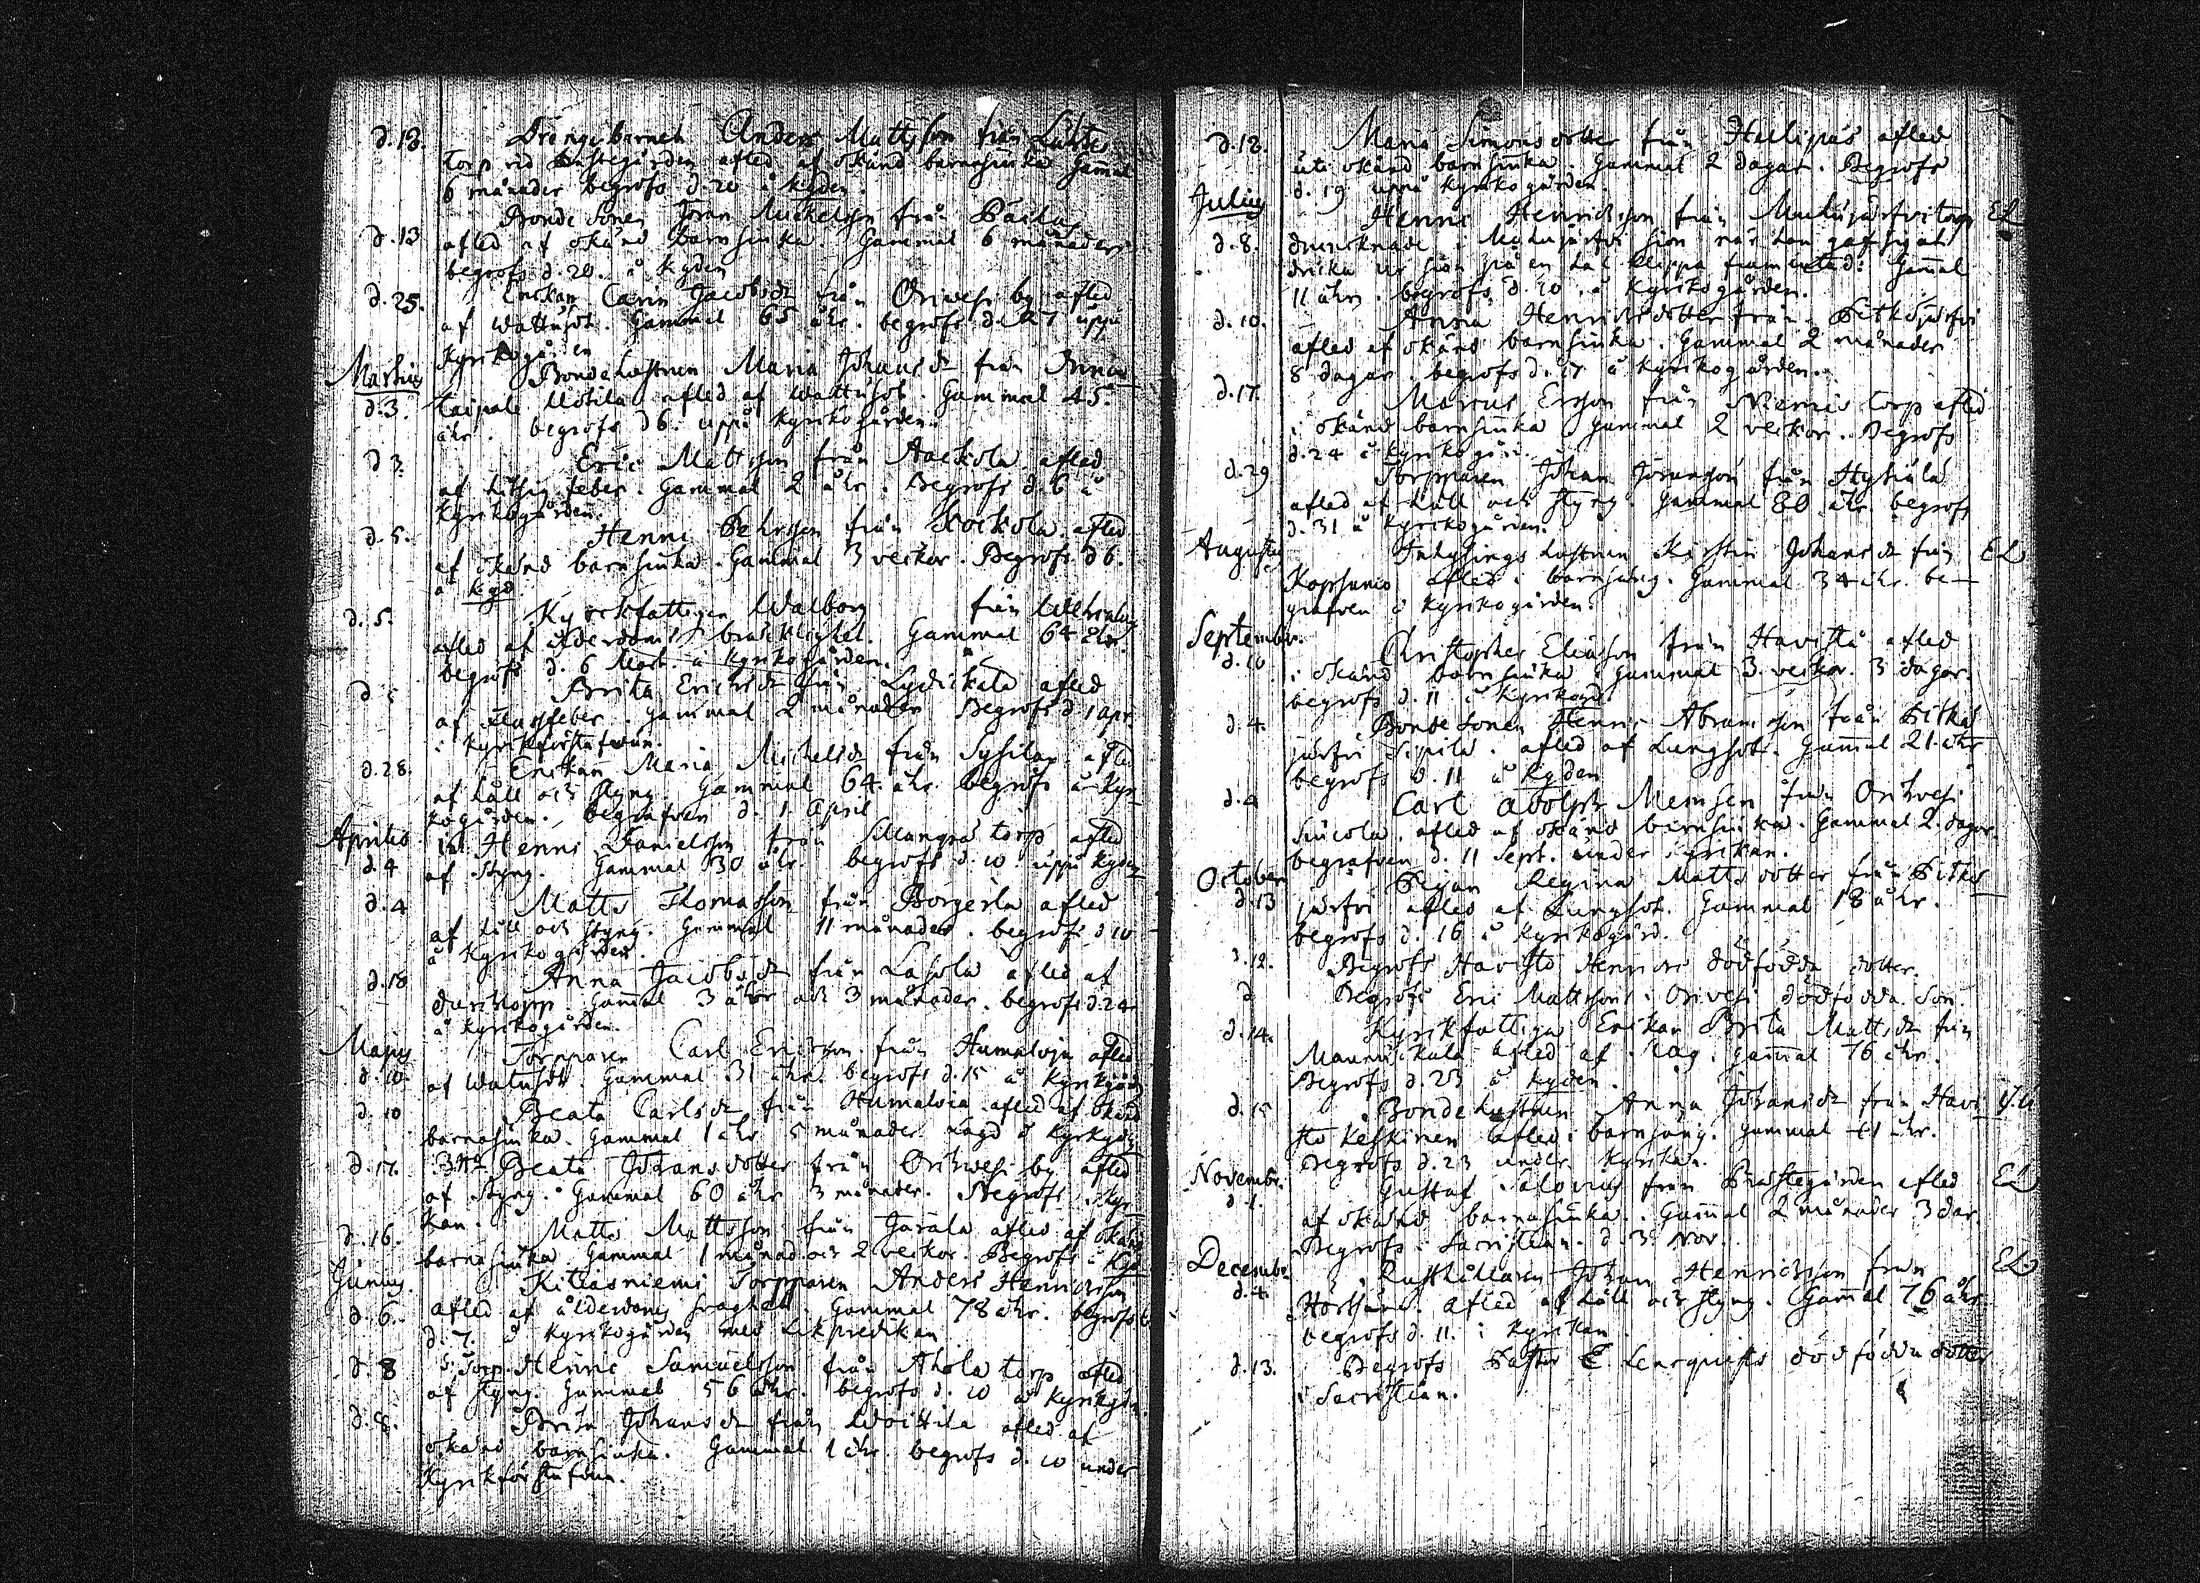 d. 12. Drängebarnet Anders Mattsson från Lähte
torp vid Prästegården afled af okänd barnasjuka Gammal
6 månader begrofs d. 20 å kgden.
d. 13 Bonde Sonen Jöran Michelsson från
afled af okänd barnsiuka. Gammal 6 månader
begrofs d. 20. å Kgden
d. 25. Enckan Carin Jacobsdr från Orivesi by afled
af wattusot. Gammal 65 åhr. begrofs d. 27 uppå
Kyrkogården
Martius Bonde hustrun Maria Johansdr från
d. 3. taipale Uotila afled af wattusot. Gammal 45.
åhr. begrofs d 6. uppå Kyrkogården.
d 3. Eric Mattsson från Aackola afled
af hitsig feber. Gammal 2 åhr. Begrofs d. 6 å
Kyrkogården.
d. 5. Henric Pehrsson från Kockola afled
af okänd barnsiuka. Gammal 3 veckor. Begrofs d 6.
å kgd
d. 5. Kyrckfattigen Walborg från
afled af ålderdoms bräcklighet. Gammal 64 åhr.
begrofs d. 6 Mart. å Kyrkogården.
d 5 Brita Erichsdr från Lydickälä afled
af Flussfeber. Gammal 2 månader Begrofs d 1 apr.
i kyrkförstufwun.
d. 28. Enckan Maria Michelsdr från Sysilax afled
af håll och styng. Gammal 64. åhr begrofs å Kyr
kogården. begrafven d. 1. April
Aprilis Henric Danielsson från torp afled
d. 4 af Styng. Gammal 30 åhr. begrofs d. 10 uppå kgden
d. 4 Matts Thomasson från Borgerla afled
af håll och styng. Gammal 11 månader. begrofs d 10
å Kyrkogården.
d. 18 Anna Jacobsdr från Lasola afled af
durchlopp. Gammal 3 åhr och 3 månader. begrofs d. 24
å Kyrkogården.
Majus Torpparen Carl Ericsson från Humaloja afled
d. 10. af watusot. Gammal 31 åhr. begrofs d. 15 å
d. 10 Beata Carlsdr från Humaloia afled af okänd
barnasiuka. Gammal 1 åhr 5 månader
d. 17. Beata Johansdotter från Orihwesi by afled
af styng. Gammal 60 åhr 3 månader. Begrofs i kyr
kan.
d. 16. Matts Mattsson från Järälä afled af okänd
barnasiuka Gammal 1 månad och 2 veckor. Begrofs å
Junius. Kitiasniemi Torpparen Anders Henricsson
d. 6. afled af ålderdoms svaghet. Gammal 78 åhr. begrofs
d. 7. å Kyrkogården med Likpredikan
d. 8 Henric Samuelsson från Ahola torp afled
af styng. Gammal 56 åhr. begrofs d. 10 å
d. 8. Brita Johansdr från Woitila afled af
okänd barnsiuka. Gammal 1 åhr. begrofs d. 10 under
Kyrkförstufvun.
d. 12. Maria Simonsdotter från Hallipås afled
uti okänd barnsiuka. Gammal 2 dagar. Begrofs
d. 19 uppå Kyrkogården.
Julius Henric Henricsson från torp EL
d. 8. drunknade i siön när han gaf sig att
dricka ur siön på en hal klippa Gammal
11 åhr. begrofs d. 10. å Kyrkogården.
d. 10. Anna Henricsdotter från Pitkäjärfvi
afled af okänd barnsiuka. Gammal 2 månader
8 dagar. begrofs d. 17 å Kyrkogården.
d. 17. Marcus Ersson från Niemis torp afled
i okänd barnsiuka. Gammal 2 veckor. Begrofs
d. 24 å Kyrkogår:
d. 29 Torpparen Johan Jöransson från
afled af håll och styng. Gammal 80 åhr begrofs
d. 31 å Kyrkogården.
Augusty Inhysings hustrun Kirstin Johansdr från EL
Kopsamo afled i barnsäng. Gammal 34 åhr. be-
grafven å kyrkogården.
Septembr. Christopher Eliasson från Havistå afled
d. 10 i okänd barnsiuka. Gammal 3. veckor. 3 dagar.
begrofs d. 11 å Kyrkogd.
d. 4. Bonde Sonen Henric Abramsson från Pitkä
järfvi Sipilä. afled af Lungsot. Gammal 21. åhr
begrofs d. 11 å kgden
d. 4 Carl Adolph från Orihvesi
afled af okänd barnsiuka. Gammal 2. dagar.
begrafven d. 11 Sept. under kyrkan.
October Pigan Regina Mattsdotter från Pitkä
d. 13 järfvi afled af Lungsot. Gammal 18 åhr.
begrofs d. 16 å Kyrkogård.
d. 12. Begrofs Havisto Henrics dödfödda dotter.
d Begrofs Eric Mattssons i Orivesi dödfödda Son.
d. 14. Kyrkfattiga Enckan Brita Mattsdr från
afled af Gammal 76 åhr.
Begrofs d. 23 å kgden.
d. 15 Bonde hustrun Anna Johansdr från Havi
sto Keskinen afled i barnsäng. Gammal 41 åhr.
Begrofs d. 23 under Kyrkan.
Novembr. Gustaf Salovius från Prästegården afled EL
d. 1. af okänd barnasiuka. Gammal 2 månader 3 dar.
Begrofs i Sacristian. d. 3. Nov.
Decembr. Rusthållaren Johan Henricsson från EL
d. 4. afled af håll och styng. Gammal 76 åhr.
begrofs d. 11. i Kyrkan
d. 13. Begrofs Pastor E Lenquists dödfödda dotter
i Sacristian.